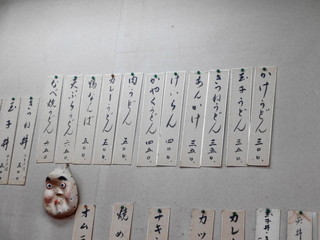 かけうどん 三〇〇
玉子うどん 三五〇
きつねうどん 三五〇
あんかけ 三五〇
けいらん 四〇〇
かやくうどん 四五〇
肉うどん 五〇〇
カレーうどん 五〇〇
鴨なんば 五〇〇
天ぷらうどん 六五〇
なべ焼うどん 六五〇
きつね丼
玉子丼
カレ
カツ
チキ
焼め
オム